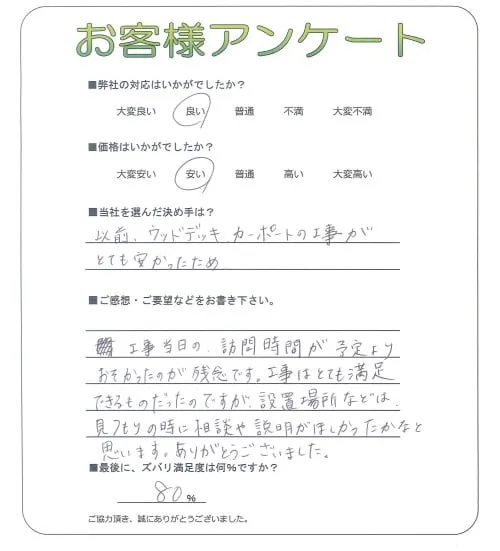 お客様アンケート
■弊社の対応はいかがでしたか？
大変良い 良い 普通 不満 大変不満
■価格はいかがでしたか？
大変安い 安い 普通 高い 大変高い
■当社を選んだ決め手は？
以前、ウッドデッキ、カーポートの工事が
とても安かったため
■ご感想・ご要望などをお書き下さい。
工事当日の、訪問時間が予定より
おそかったのが残念です。工事はとても満足
できるものだったのですが、設置場所などは、
見つもりの時に相談や説明がほしかったかなと
思います。ありがとうございました。
■最後に、ズバリ満足度は何%ですか？
80 %
ご協力頂き、誠にありがとうございました。